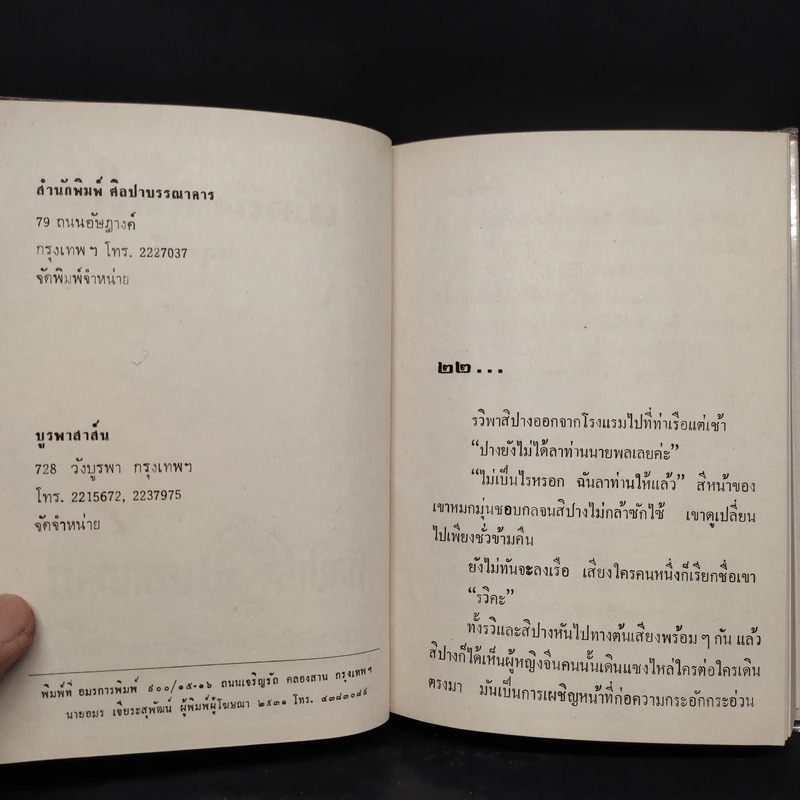 สำนักพิมพ์ ศิลปาบรรณาคาร
79 ถนนอัษฎางค์
กรุงเทพฯ โทร. 2227037
จัดพิมพ์จำหน่าย
บูรพาสาส์น
728 วังบูรพา กรุงเทพฯ
โทร. 2215672, 2237975
จัดจำหน่าย
พิมพ์ที่ อมรการพิมพ์ ๙๐๐/๑๕-๑๖ ถนนเจริญรัถ คลองสาน กรุงเทพฯ
นายอมร เจียระสุพัฒน์ ผู้พิมพ์ผู้โฆษณา ๒๕๓๑ โทร. ๔๓๘๓๐๘๙
๒๒...
รวิพาสิปางออกจากโรงแรมไปที่ท่าเรือแต่เช้า
“ปางยังไม่ได้ลาท่านนายพลเลยค่ะ”
“ไม่เป็นไรหรอก ฉันลาท่านให้แล้ว” สีหน้าของ
เขาหมกมุ่นชอบกลจนสิปางไม่กล้าซักไซ้ เขาดูเปลี่ยน
ไปเพียงชั่วข้ามคืน
ยังไม่ทันจะลงเรือ เสียงใครคนหนึ่งก็เรียกชื่อเขา
“รวิคะ”
ทั้งรวิและสิปางหันไปทางต้นเสียงพร้อมๆ กัน แล้ว
สิปางก็ได้เห็นผู้หญิงจีนคนนั้นเดินแซงไหล่ใครต่อใครเดิน
ตรงมา มันเป็นการเผชิญหน้าที่ก่อความกระอักกระอ่วน